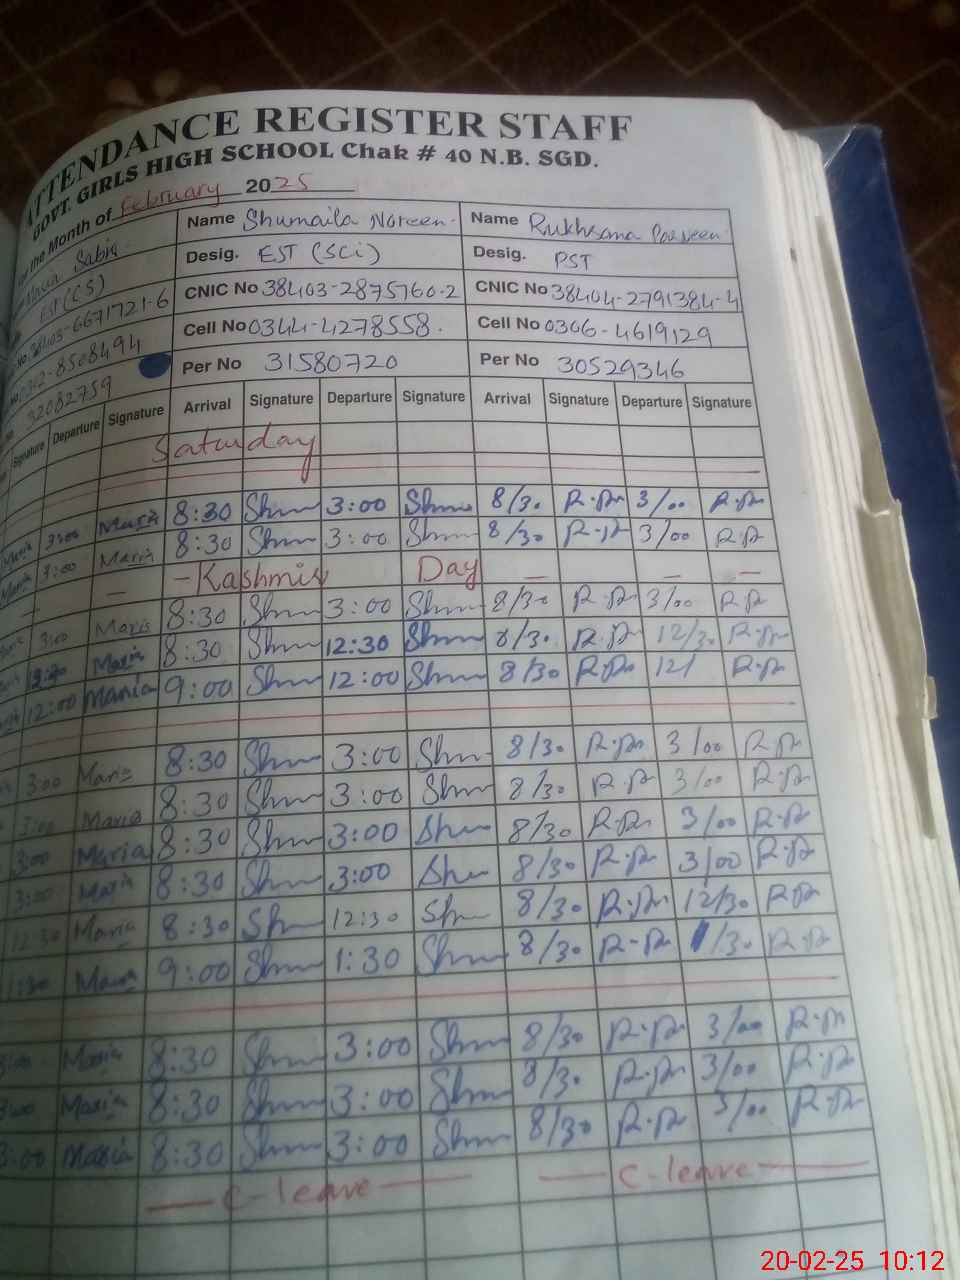 ATTENDANCE REGISTER STAFF
GOVT. GIRLS HIGH SCHOOL Chak # 40 N.B. SGD.
For the Month of February 2025
Name Shumaila Noreen. Name Rukhsana Parveen
Desig. EST (SCi) Desig. PST
EST (CS) CNIC No 38403-2875760-2 CNIC No 38404-2791384-4
38403-6671721-6 Cell No 0344-4278558. Cell No 0306-4619129
8508494 Per No 31580720 Per No 30529346
32082759
Signature Departure Signature Arrival Signature Departure Signature Arrival Signature Departure Signature
Saturday
Maria 8:30 Shm 3:00 Shm 8/30 R.Pr 3/00 R.Pr
Maria 3:00 Maria 8:30 Shm 3:00 Shm 8/30 R.Pr 3/00 R.Pr
- Kashmir Day - - -
3:00 Maria 8:30 Shm 3:00 Shm 8/30 R.Pr 3/00 R.Pr
Maria 8:30 Shm 12:30 Shm 8/30 R.Pr 12/30 R.Pr
12:00 Maria 9:00 Shm 12:00 Shm 8/30 R.Pr 12/ R.Pr
3:00 Maria 8:30 Shm 3:00 Shm 8/30 R.Pr 3/00 R.Pr
3:00 Maria 8:30 Shm 3:00 Shm 8/30 R.Pr 3/00 R.Pr
3:00 Maria 8:30 Shm 3:00 Shm 8/30 R.Pr 3/00 R.Pr
3:00 Maria 8:30 Shm 3:00 Shm 8/30 R.Pr 3/00 R.Pr
12:30 Maria 8:30 Shm 12:30 Shm 8/30 R.Pr 12/30 R.Pr
1:30 Maria 9:00 Shm 1:30 Shm 8/30 R.Pr 1/30 R.Pr
Maria 8:30 Shm 3:00 Shm 8/30 R.Pr 3/00 R.Pr
Maria 8:30 Shm 3:00 Shm 8/30 R.Pr 3/00 R.Pr
3:00 Maria 8:30 Shm 3:00 Shm 8/30 R.Pr 3/00 R.Pr
— C-leave — — C-leave —
20-02-25 10:12